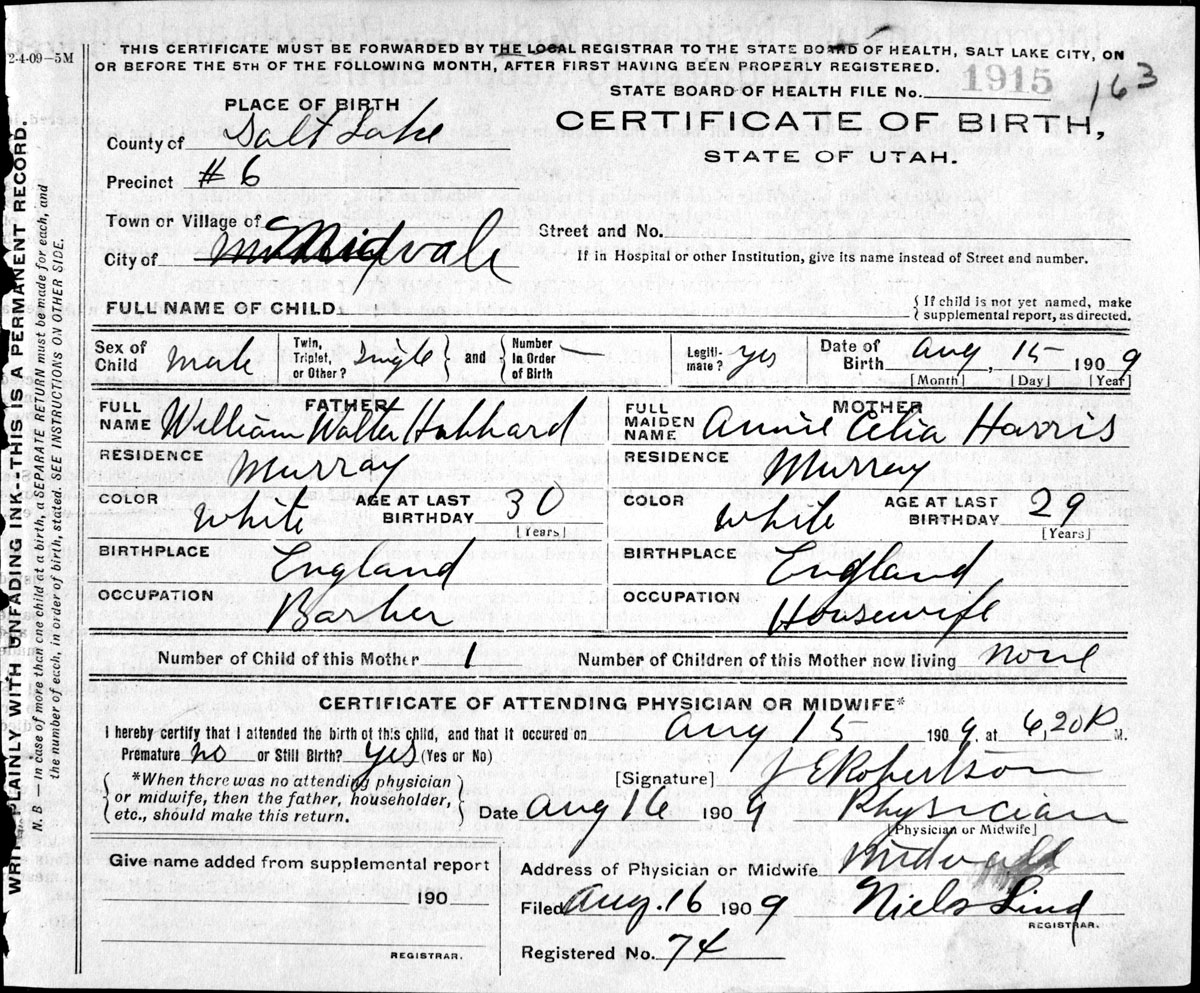 2-4-09—5M
THIS CERTIFICATE MUST BE FORWARDED BY THE LOCAL REGISTRAR TO THE STATE BOARD OF HEALTH, SALT LAKE CITY, ON
OR BEFORE THE 5TH OF THE FOLLOWING MONTH, AFTER FIRST HAVING BEEN PROPERLY REGISTERED.
STATE BOARD OF HEALTH FILE No. 1915 163
PLACE OF BIRTH
CERTIFICATE OF BIRTH,
STATE OF UTAH.
County of Salt Lake
Precinct #6
Town or Village of
City of Midvale
Street and No.
If in Hospital or other Institution, give its name instead of Street and number.
FULL NAME OF CHILD
{ If child is not yet named, make
supplemental report, as directed.
Sex of Child Male Twin, Triplet, or Other? Single } and { Number In Order of Birth — Legiti-mate? yes Date of Birth Aug, 15 1909
[Month] [Day] [Year]
FATHER
FULL NAME William Walter Hubbard
RESIDENCE Murray
COLOR White AGE AT LAST BIRTHDAY 30
[Years]
BIRTHPLACE England
OCCUPATION Barber
MOTHER
FULL MAIDEN NAME Annie Celia Harris
RESIDENCE Murray
COLOR White AGE AT LAST BIRTHDAY 29
[Years]
BIRTHPLACE England
OCCUPATION Housewife
Number of Child of this Mother 1 Number of Children of this Mother now living none
CERTIFICATE OF ATTENDING PHYSICIAN OR MIDWIFE*
I hereby certify that I attended the birth of this child, and that it occured on Aug 15 1909, at 6,20 P M.
Premature no or Still Birth? yes (Yes or No)
{ *When there was no attending physician
or midwife, then the father, householder,
etc., should make this return. }
[Signature] J E Robertson
Date Aug 16 1909 Physician
[Physician or Midwife]
Give name added from supplemental report
190
REGISTRAR.
Address of Physician or Midwife Midvale
Filed Aug. 16 1909 Niels Lind
REGISTRAR.
Registered No. 74
WRITE PLAINLY WITH UNFADING INK--THIS IS A PERMANENT RECORD.
N. B — In case of more than one child at a birth, a SEPARATE RETURN must be made for each, and
the number of each, in order of birth, stated. SEE INSTRUCTIONS ON OTHER SIDE.